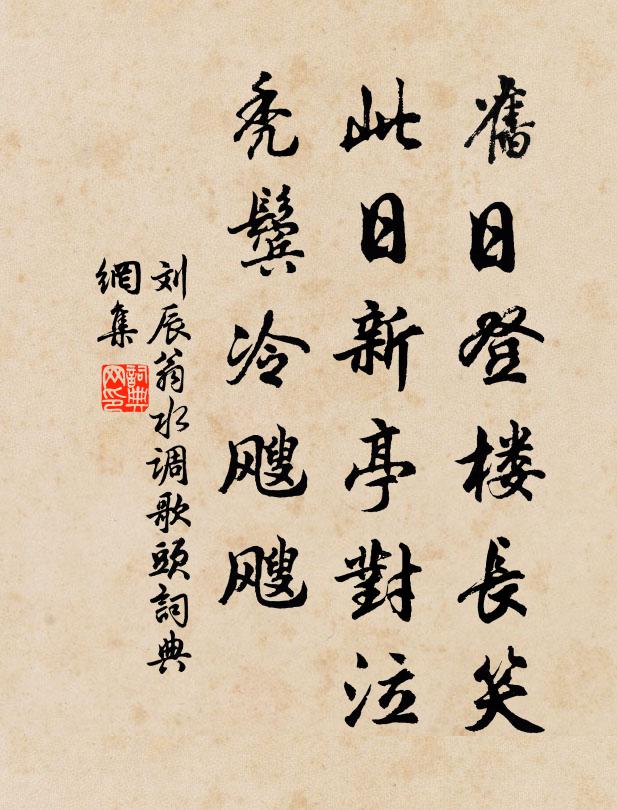 舊日登楼長笑
此日新亭對泣
秃鬓冷飕飕
刘辰翁水调歌頭詞典
網集
詞典
网印